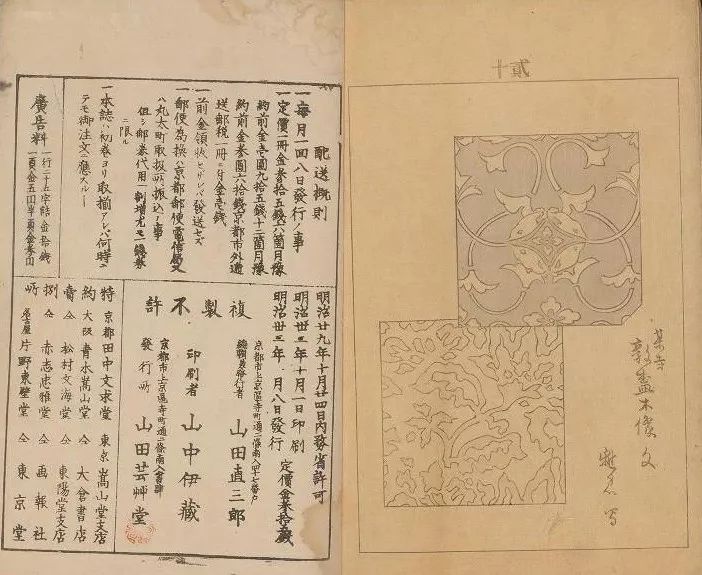 某寺
木像文
配送概則
一毎月一回八日發行ノ事
一定價一冊金參拾五錢六箇月豫
約前金壱圓九拾五錢十二箇月豫
約前金參圓六拾錢京都市外逓
送郵税一冊ニ付金壱錢
一前金領收セザレバ發送セズ
一郵便為換ハ京都郵便電信局又
ハ丸太町取扱所振込ノ事
但シ郵券代用一割増尤モ錢券
ニ限ル
一本誌ハ初巻ヨリ取揃アレバ何時ニ
テモ御注文ニ應スル
廣告料
一行二十五字詰金拾錢
一頁金五円半頁金參円
明治廿九年十月廿四日内務省許可
明治卅三年十月一日印刷
明治卅三年 月八日發行 定價金參拾五錢
複製不許
京都市上京區寺町通二條南入四十七番戸
編輯兼發行者 山田直三郎
印刷者 山中伊藏
京都市上京區寺町通二條南入書肆
發行所 山田芸艸堂
特約賣捌所
京都田中文求堂 東京嵩山堂支店
大阪青木嵩山堂 仝 大倉書店
仝 松村文海堂 仝 東陽堂支店
仝 赤志忠雅堂 仝 画報社
名古屋片野東壁堂 仝 東京堂